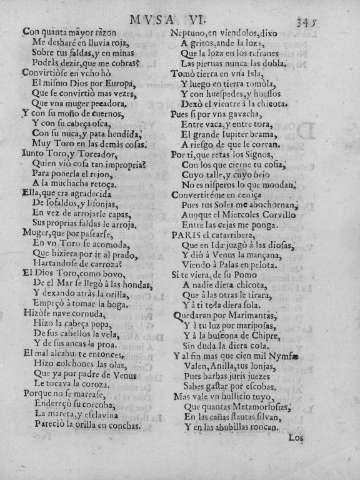 MVSA VI.
345
Con quanta mayor razon
Me desharé en lluvia roja,
Sobre tus faldas, y en minas
Podràs dezir, que me cobras?
Convirtióse en vcho hò
El mismo Dios por Europa,
Que se convirtiò mas vezes,
Que vna muger pecadora.
Y con su moño de cuernos,
Y con su cabeça osca,
Con su nuca, y pata hendida,
Muy Toro en las demàs cosas.
Iunto Toro, y Toreador,
Quien viò cosa tan impropria?
Para ponerla el rejon,
A la muchacha retoça.
Ella, que era agradecida
De sofaldos, y lisonjas,
En vez de arrojarle capas,
Sus proprias faldas le arroja.
Muger, que por passearse,
En vn Toro se acomoda,
Que hiziera por ir al prado,
Hartandose de carroza?
El Dios Toro, como bovo,
De el Mar se llegò à las hondas,
Y dexando atràs la orilla,
Empeçò à tomar la boga.
Hizose nave cornuda,
Hizo la cabeça popa,
De sus cabellos la vela,
Y de sus ancas la proa.
El mal alcabu te entonces,
Hizo colchones las olas,
Que ya por padre de Venus
Le tocava la coroza.
Porque no se marease,
Endereçò su corcoba,
La mareta, y esclavina
Pareciò la orilla en conchas.
Neptuno, en viendolos, dixo
A gritos, ande la loza,
Que la loza en los refranes
Las piernas nunca las dobla.
Tomò tierra en vna Isla,
Y luego en tierra tomòla,
Y con huespedes, y huessos
Dexò el vientre à la chicota.
Pues si por vna gavacha,
Entre vaca, y entre tora,
El grande Iupiter brama,
A riesgo de que le corran.
Por ti, que eras los Signos,
Con los que cierne tu cosia,
Cuyo talle, y cuyo brio
No es nisperos lo que mondan,
Convertirème en ceniça
Pues tus Soles me abochornan,
Aunque el Miercoles Corvillo
Entre las cejas me ponga.
PARIS el catarribera,
Que en Ida juzgò à las diosas,
Y diò à Venus la mançana,
Viendo à Palas en pelota.
Si te viera, de su Pomo
A nadie diera chicota,
Que à las otras le tirara,
Y à ti toda diera sola.
Quedaran por Marimantas,
Y à tu luz por mariposas,
Y à la busiona de Chipre,
Sin duda la diera cola.
Y al fin mas que cien mil Nymfas
Valen, Anilla, tus lonjas,
Pues barbas juris juezes
Sabes gastar por escobas.
Mas vale vn bullicio tuyo,
Que quantas Metamorfosias,
En las cañas flautas silvan,
Y en las abubillas roncan.
Los